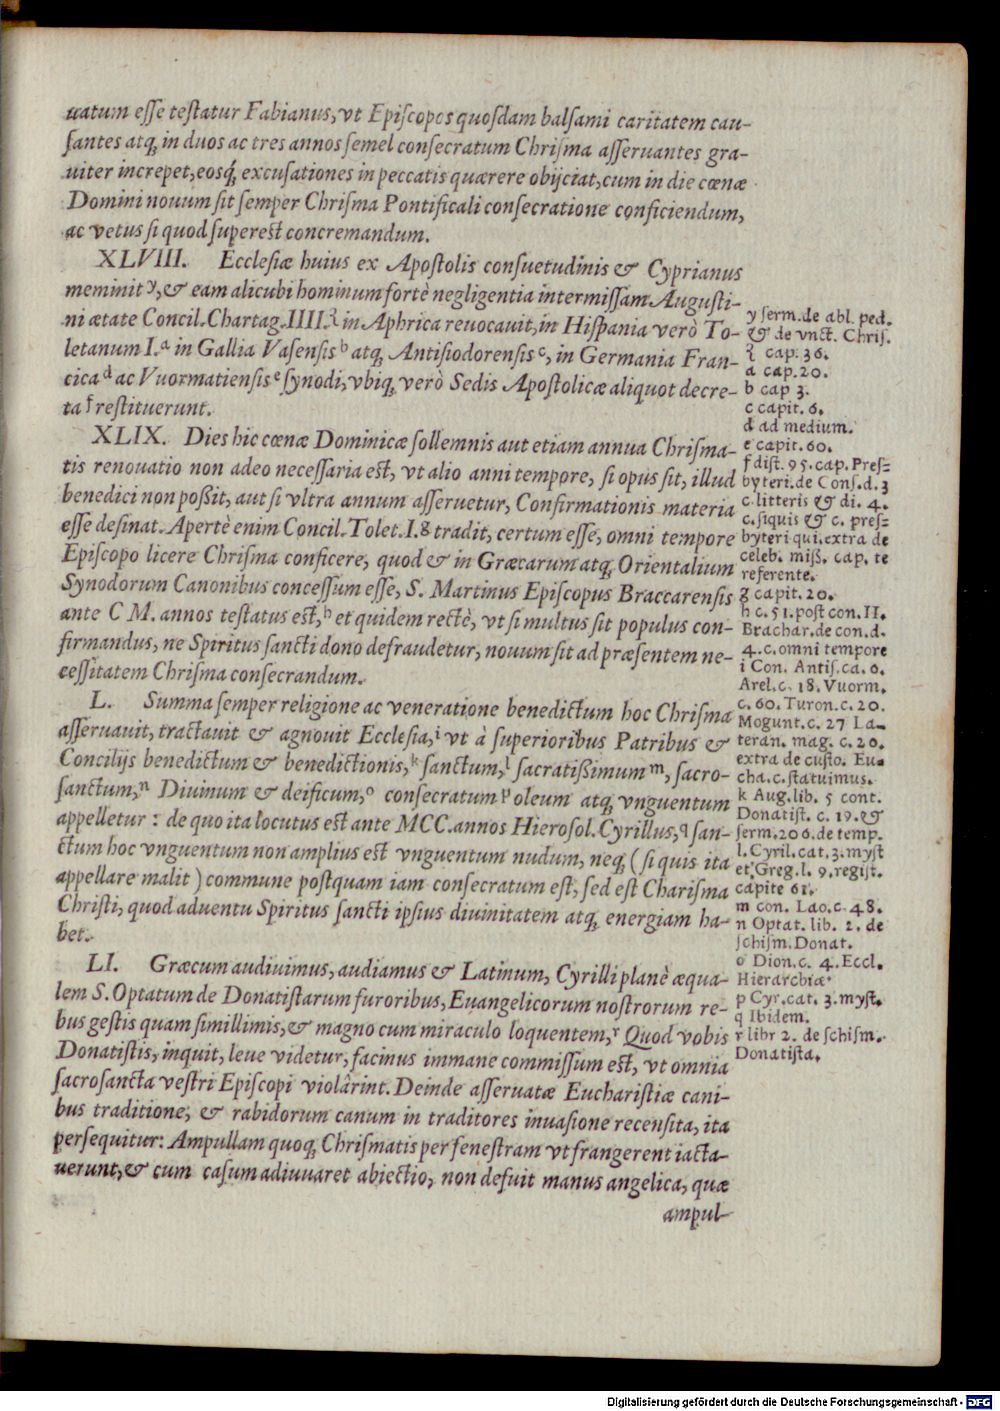 uatum eſſe teſtatur Fabianus, vt Epiſcopos quoſdam balſami caritatem cau-
ſantes atq; in duos ac tres annos ſemel conſecratum Chriſma aſſeruantes gra-
uiter increpet, eosq́; excuſationes in peccatis quærere obijciat, cum in die cœnæ
Domini nouum ſit ſemper Chriſma Pontificali conſecratione conficiendum,
ac vetus ſi quod ſupereſt concremandum.
XLVIII. Eccleſiæ huius ex Apoſtolis conſuetudinis & Cyprianus
meminit y, & eam alicubi hominum fortè negligentia intermiſſam Auguſti-
ni ætate Concil. Chartag. IIII. ꝛ in Aphrica reuocauit, in Hiſpania verò To-
letanum I. a in Gallia Vaſenſis b atq; Antiſiodorenſis c, in Germania Fran-
cica d ac Vuormatienſis e ſynodi, vbiq; verò Sedis Apoſtolicæ aliquot decre-
ta f reſtituerunt.
XLIX. Dies hic cœnæ Dominicæ ſollemnis aut etiam annua Chriſma-
tis renouatio non adeo neceſſaria eſt, vt alio anni tempore, ſi opus ſit, illud
benedici non poßit, aut ſi vltra annum aſſeruetur, Confirmationis materia
eſſe deſinat. Apertè enim Concil. Tolet. I. g tradit, certum eſſe, omni tempore
Epiſcopo licere Chriſma conficere, quod & in Græcarum atq; Orientalium
Synodorum Canonibus conceſſum eſſe, S. Martinus Epiſcopus Braccarenſis
ante C M. annos teſtatus eſt, h et quidem rectè, vt ſi multus ſit populus con-
firmandus, ne Spiritus ſancti dono defraudetur, nouum ſit ad præſentem ne-
ceſſitatem Chriſma conſecrandum.
L. Summa ſemper religione ac veneratione benedictum hoc Chriſma
aſſeruauit, tractauit & agnouit Eccleſia, i vt à ſuperioribus Patribus &
Concilijs benedictum & benedictionis, k ſanctum, l ſacratißimum m, ſacro-
ſanctum, n Diuinum & deificum, o conſecratum p oleum atq; vnguentum
appelletur : de quo ita locutus eſt ante MCC. annos Hieroſol. Cyrillus, q ſan-
ctum hoc vnguentum non amplius eſt vnguentum nudum, neq; ( ſi quis ita
appellare malit ) commune poſtquam iam conſecratum eſt, ſed eſt Chariſma
Chriſti, quod aduentu Spiritus ſancti ipſius diuinitatem atq; energiam ha-
bet.
LI. Græcum audiuimus, audiamus & Latinum, Cyrilli planè æqua-
lem S. Optatum de Donatiſtarum furoribus, Euangelicorum noſtrorum re-
bus geſtis quam ſimillimis, & magno cum miraculo loquentem, r Quod vobis
Donatiſtis, inquit, leue videtur, facinus immane commiſſum eſt, vt omnia
ſacroſancta veſtri Epiſcopi violârint. Deinde aſſeruatæ Euchariſtiæ cani-
bus traditione, & rabidorum canum in traditores inuaſione recenſita, ita
perſequitur: Ampullam quoq; Chriſmatis per feneſtram vt frangerent iacta-
uerunt, & cum caſum adiuuaret abiectio, non defuit manus angelica, quæ
ampul-
y ſerm. de abl. ped.
& de vnct. Chriſ.
ꝛ cap. 36.
a cap. 20.
b cap 3.
c capit. 6.
d ad medium.
e capit. 60.
f diſt. 95. cap. Preſ-
byteri. de Conſ. d. 3
c. litteris & di. 4.
c. ſiquis & c. preſ-
byteri qui. extra de
celeb. miß. cap. te
referente.
g capit. 20.
h c. 51. poſt con. II.
Brachar. de con. d.
4. c. omni tempore
i Con. Antiſ. ca. 6.
Arel. c. 18. Vuorm.
c. 60. Turon. c. 20.
Mogunt. c. 27 La-
teran. mag. c. 20.
extra de cuſto. Eu-
cha. c. ſtatuimus.
k Aug. lib. 5 cont.
Donatiſt. c. 19. &
ſerm. 206. de temp.
l. Cyril. cat. 3. myſt
et Greg. l. 9. regiſt.
capite 61.
m con. Lao. c. 48.
n Optat. lib. 2. de
ſchiſm. Donat.
o Dion. c. 4. Eccl.
Hierarchiæ.
p Cyr. cat. 3. myſt.
q Ibidem.
r libr 2. de ſchiſm.
Donatiſta.
Digitalisierung gefördert durch die Deutsche Forschungsgemeinschaft - DFG